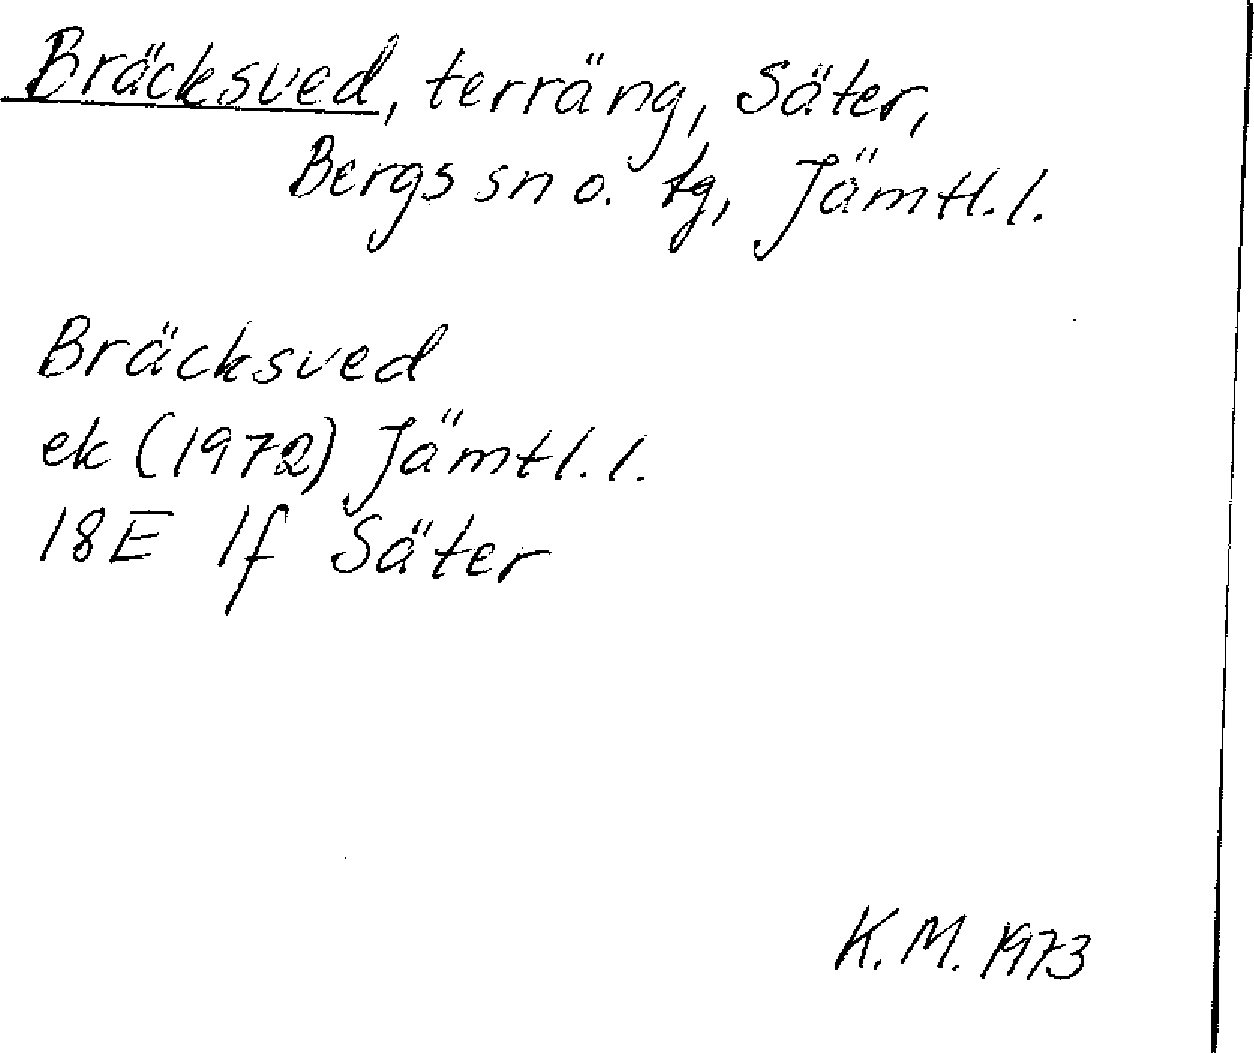 Bräcksved, terräng, Säter,
Bergs sn o. tg, Jämtl. l.
Bräcksved
ek (1972) Jämtl. l.
18E 1f Säter
K. M. 1973